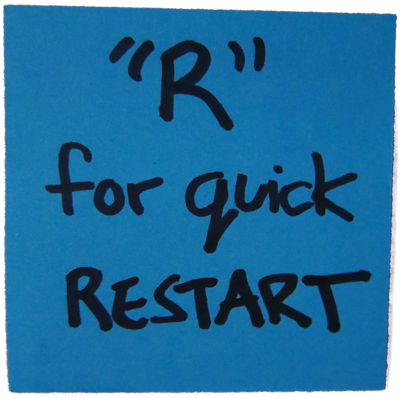 "R"
for quick
RESTART